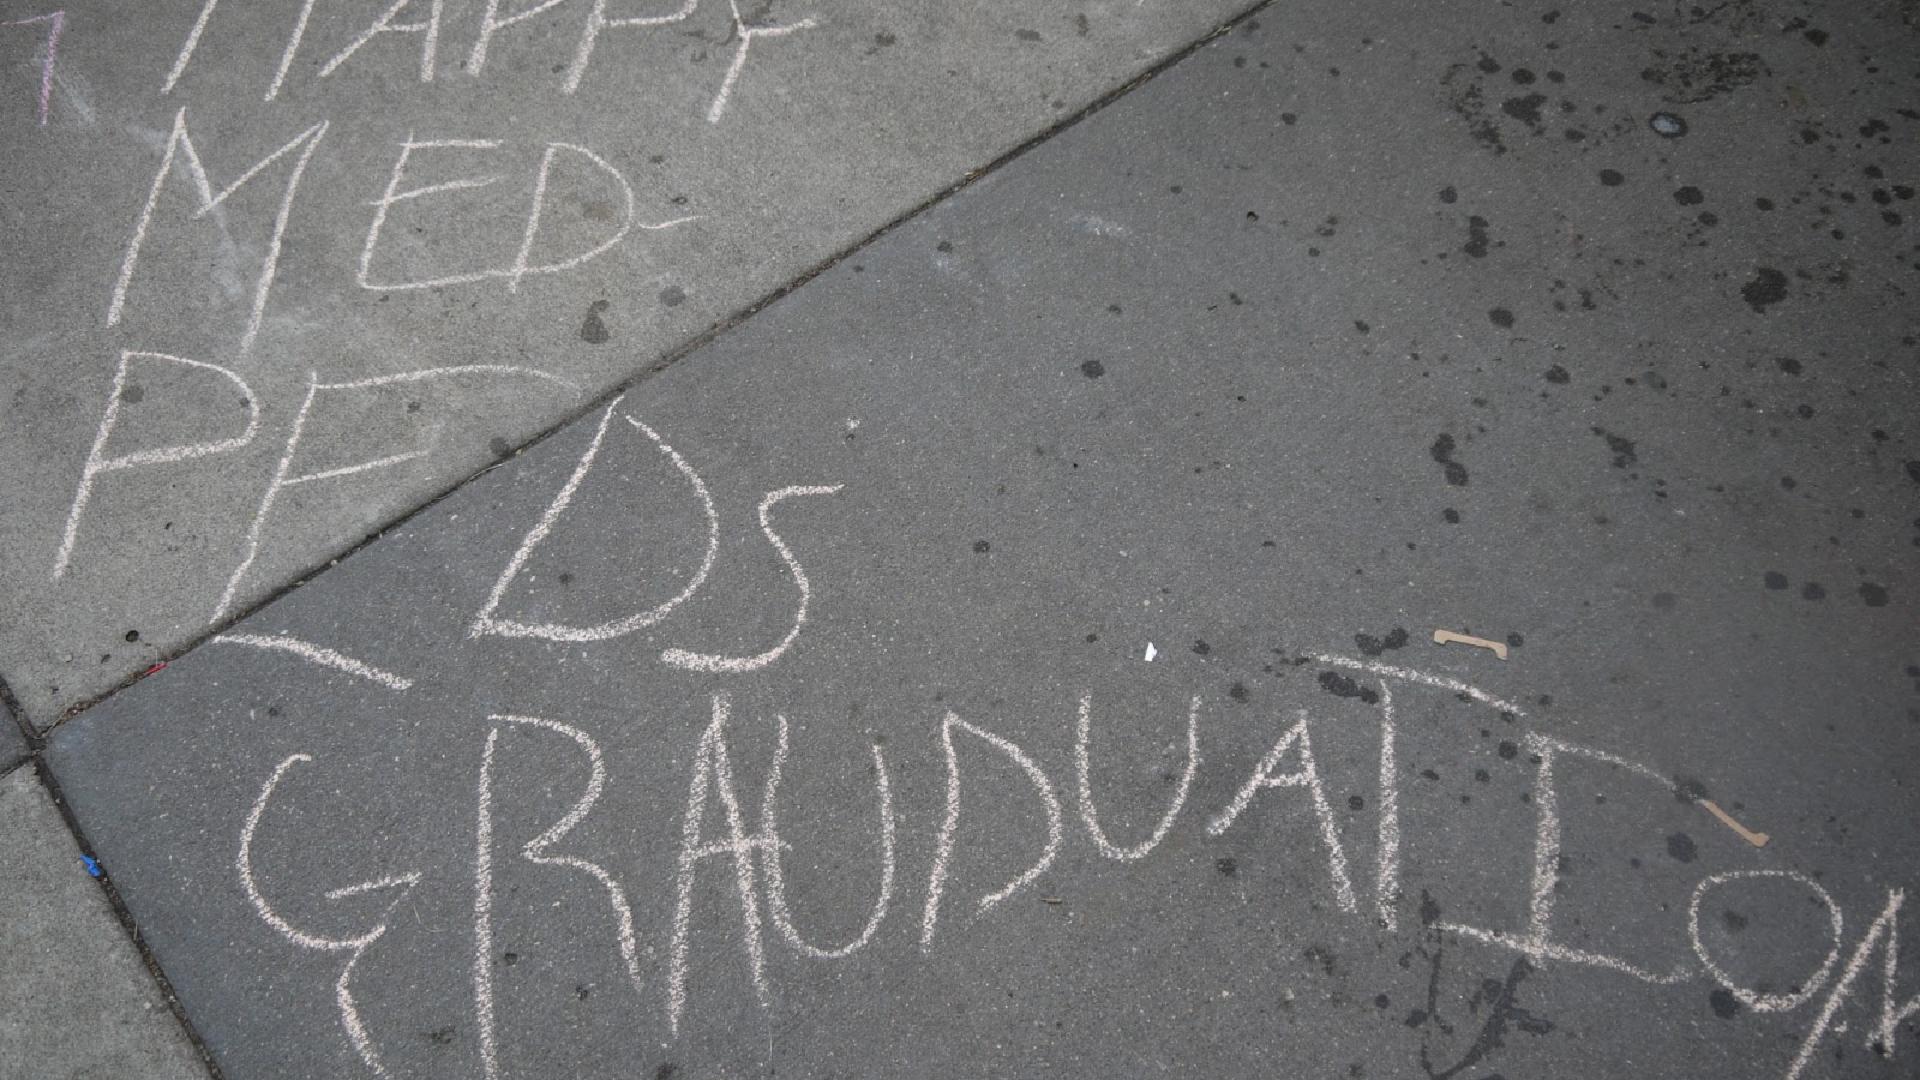 HAPPY
MED-
PEDS
GRAUDUATION